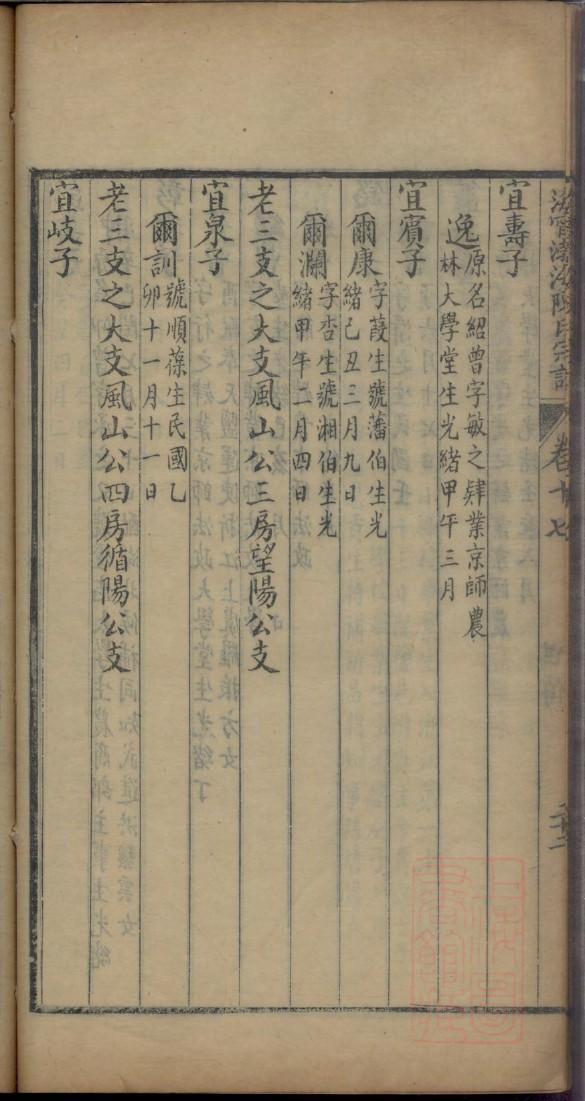 海寧渤海陳氏宗譜
卷十七
宜壽子
逸原名紹曾字敏之肄業京師農
林大學堂生光緒甲午三月
宜賓子
爾康字葭生號藩伯生光
緒己丑三月九日
爾瀾字杏生號湘伯生光
緒甲午二月四日
老三支之大支風山公三房望陽公支
宜泉子
爾訓號順葆生民國乙
卯十一月十一日
老三支之大支風山公四房循陽公支
宜岐子